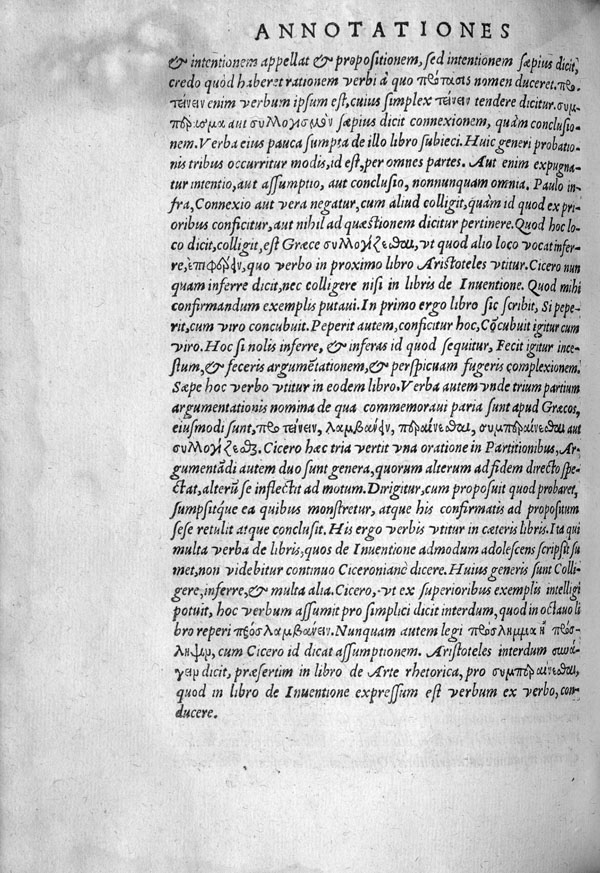 ANNOTATIONES
& intentionem appellat & propositionem, sed intentionem sæpius dicit,
credo quòd haberet rationem verbi à quo πρότασις nomen duceret. προ-
τείνειν enim verbum ipsum est, cuius simplex τείνειν tendere dicitur. συμ-
πέρασμα aut συλλογισμὸν sæpius dicit connexionem, quàm conclusio-
nem. Verba eius pauca sumpta de illo libro subieci. Huic generi probatio-
nis tribus occurritur modis, id est, per omnes partes. Aut enim expugna-
tur intentio, aut assumptio, aut conclusio, nonnunquam omnia. Paulo in-
fra, Connexio aut vera negatur, cum aliud colligit, quàm id quod ex pri-
oribus conficitur, aut nihil ad quæstionem dicitur pertinere. Quod hoc lo-
co dicit, colligit, est Græce συλλογίζεσθαι, vt quod alio loco vocat infer-
re, ἐπιφέρειν, quo verbo in proximo libro Aristoteles vtitur. Cicero nun
quam inferre dicit, nec colligere nisi in libris de Inuentione. Quod mihi
confirmandum exemplis putaui. In primo ergo libro sic scribit, Si pepe-
rit, cum viro concubuit. Peperit autem, conficitur hoc, Cõcubuit igitur cum
viro. Hoc si nolis inferre, & inferas id quod sequitur, Fecit igitur ince-
stum, & feceris argumẽtationem, & perspicuam fugeris complexionem.
Sæpe hoc verbo vtitur in eodem libro. Verba autem vnde trium partium
argumentationis nomina de qua commemoraui paria sunt apud Græcos,
eiusmodi sunt, προτείνειν, λαμβάνειν, περαίνεσθαι, συμπεραίνεσθαι aut
συλλογίζεσθαι. Cicero hæc tria vertit vna oratione in Partitionibus, Ar-
gumentãdi autem duo sunt genera, quorum alterum ad fidem directo spe-
ctat, alterũ se inflectit ad motum. Dirigitur, cum proposuit quod probaret,
sumpsitque ea quibus monstretur, atque his confirmatis ad propositum
sese retulit atque conclusit. His ergo verbis vtitur in cæteris libris. Ita qui
multa verba de libris, quos de Inuentione admodum adolescens scripsit su
met, non videbitur continuo Ciceronianè dicere. Huius generis sunt Colli-
gere, inferre, & multa alia. Cicero, vt ex superioribus exemplis intelligi
potuit, hoc verbum assumit pro simplici dicit interdum, quod in octauo li
bro reperi προσλαμβάνειν. Nunquam autem legi πρόσλημμα ἢ πρόσ-
ληψιν, cum Cicero id dicat assumptionem. Aristoteles interdum συνά-
γειν dicit, præsertim in libro de Arte rhetorica, pro συμπεραίνεσθαι,
quod in libro de Inuentione expressum est verbum ex verbo, con-
ducere.